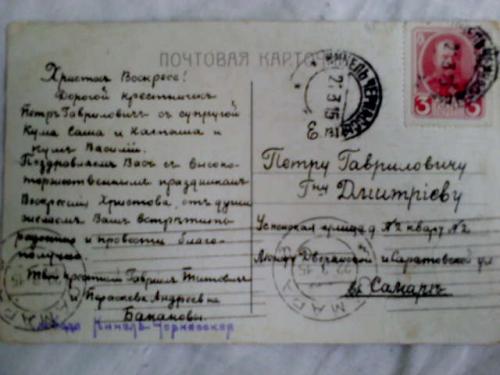 ПОЧТОВАЯ КАРТО
Христосъ Воскресе!
Дорогой крестничекъ
Петръ Гавриловичъ съ супругой
Кума Саша и
Кумъ Василій.
Поздравляемъ Васъ съ высоко-
торжественнымъ праздникомъ
Воскресия Христова, отъ души
желаемъ Вамъ встрѣтить
радостно и провести благо-
получно
Твой крестный Гавриилъ Титовичъ
и Параскева Андреевна
Бакановы.
Кинель-Черкасской
КИНЕЛЬ ЧЕРКАС
2 3 15
3
Петру Гавриловичу
Гну Дмитріеву
Успенская улица д №2 кварт №2
между Дворянской и Саратовской ул
въ Самаръ
САМАРА
22 3 15